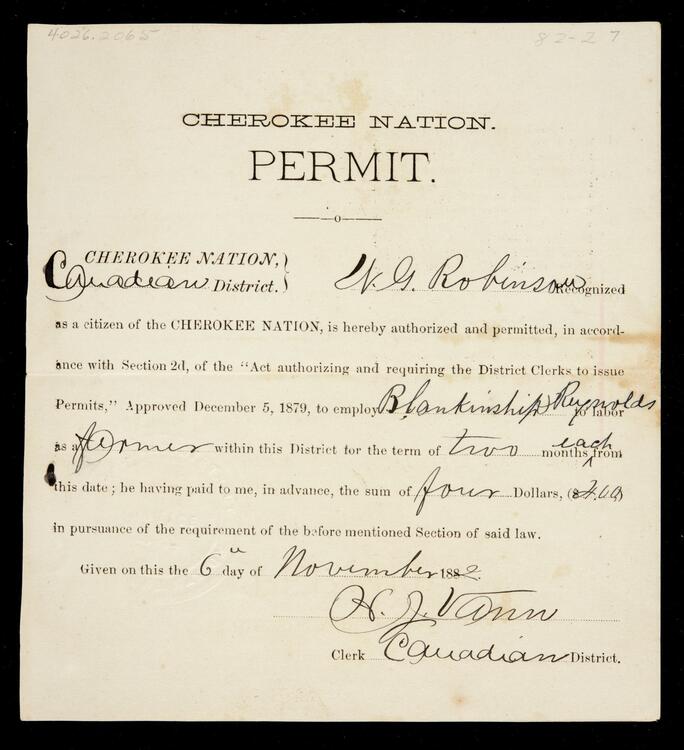 4026.2065
82-27
CHEROKEE NATION.
PERMIT.
o
CHEROKEE NATION, }
Canadian District.
W. G. Robinson Recognized
as a citizen of the CHEROKEE NATION, is hereby authorized and permitted, in accord-
ance with Section 2d, of the "Act authorizing and requiring the District Clerks to issue
Permits," Approved December 5, 1879, to employ Blankinship Reynolds to labor
as a farmer within this District for the term of two months each from
this date; he having paid to me, in advance, the sum of four Dollars, ($4.00)
in pursuance of the requirement of the before mentioned Section of said law.
Given on this the 6 day of November 1882.
Vann
Clerk Canadian District.